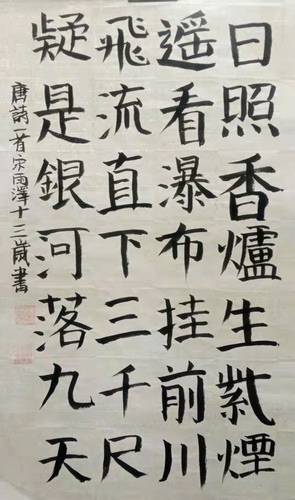 日照香爐生紫煙
遥看瀑布挂前川
飛流直下三千尺
疑是銀河落九天
唐詩一首宋雨澤十三歲書